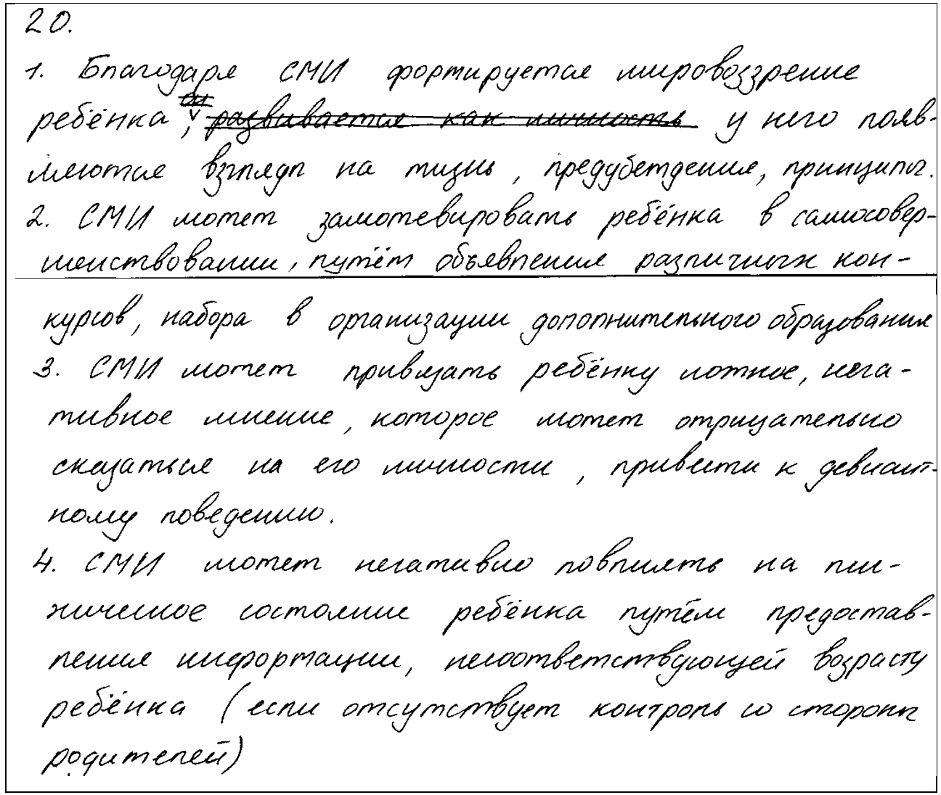 20.
1. Благодаря СМИ формируется мировоззрение
ребёнка, он развивается как личность у него появ-
ляются взгляды на жизнь, предубеждения, принципы.
2. СМИ может замотевировать ребёнка в самосовер-
шенствовании, путём объявления различных кон-
курсов, набора в организации дополнительного образования
3. СМИ может привязать ребёнку ложное, нега-
тивное мнение, которое может отрицательно
сказаться на его личности, привести к девиант-
ному поведению.
4. СМИ может негативно повлиять на пси-
хическое состояние ребёнка путём предостав-
ления информации, несоответствующей возрасту
ребёнка (если отсутствует контроль со стороны
родителей)